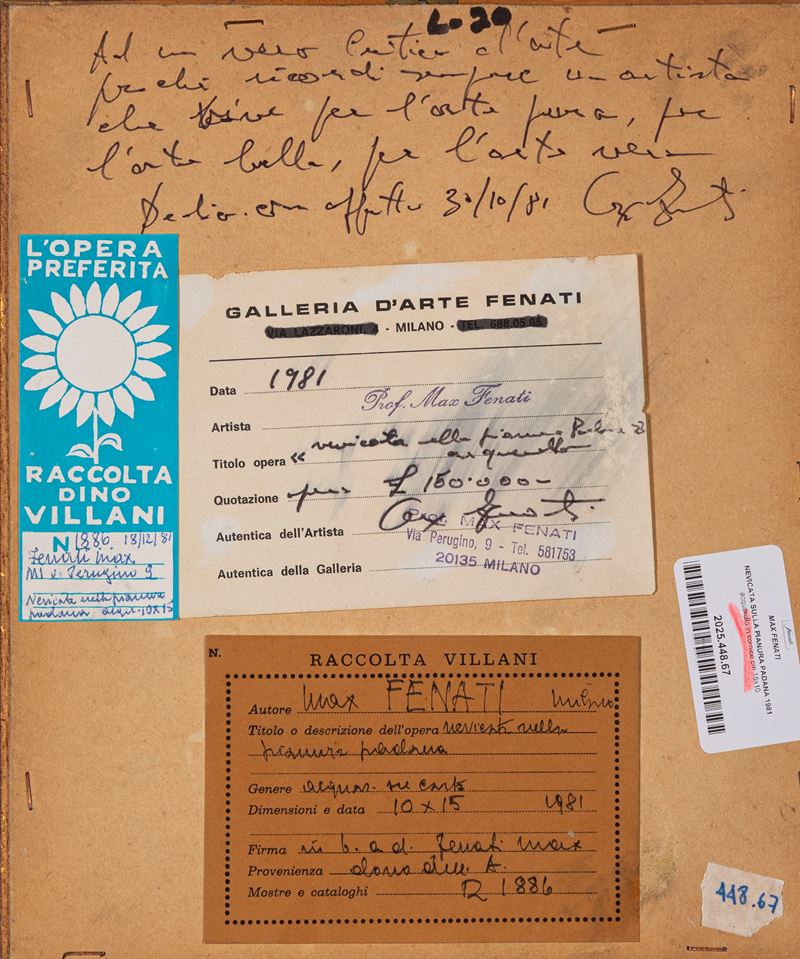 L. 20
Ad un vero Critico d'arte
perché ricordi sempre un artista
che vive per l'arte pura, per
l'arte bella, per l'arte vera
Dedico con affetto 30/10/81
L'OPERA
PREFERITA
RACCOLTA
DINO
VILLANI
N 1886 18/12/81
Fenati Max
MI v. Perugino 9
Nevicata nella pianura
padana acqu. 10x15
GALLERIA D'ARTE FENATI
VIA LAZZARONI, 4 - MILANO - TEL. 688.05.65
Data 1981
Artista Prof. Max Fenati
Titolo opera « nevicata nella pianura Padana »
acquerello
Quotazione £ 150.000-
Autentica dell'Artista
Prof. MAX FENATI
Via Perugino, 9 - Tel. 581753
20135 MILANO
Autentica della Galleria
N. RACCOLTA VILLANI
Autore Max FENATI Milano
Titolo o descrizione dell'opera nevicata nella
pianura padana
Genere acquar. su carta
Dimensioni e data 10 x 15 1981
Firma in b. a d. Fenati Max
Provenienza dono dell'A.
Mostre e cataloghi R 1886
MAX FENATI
NEVICATA SULLA PIANURA PADANA 1981
acquerello in cornice cm 15x10
2025.448.67
448.67